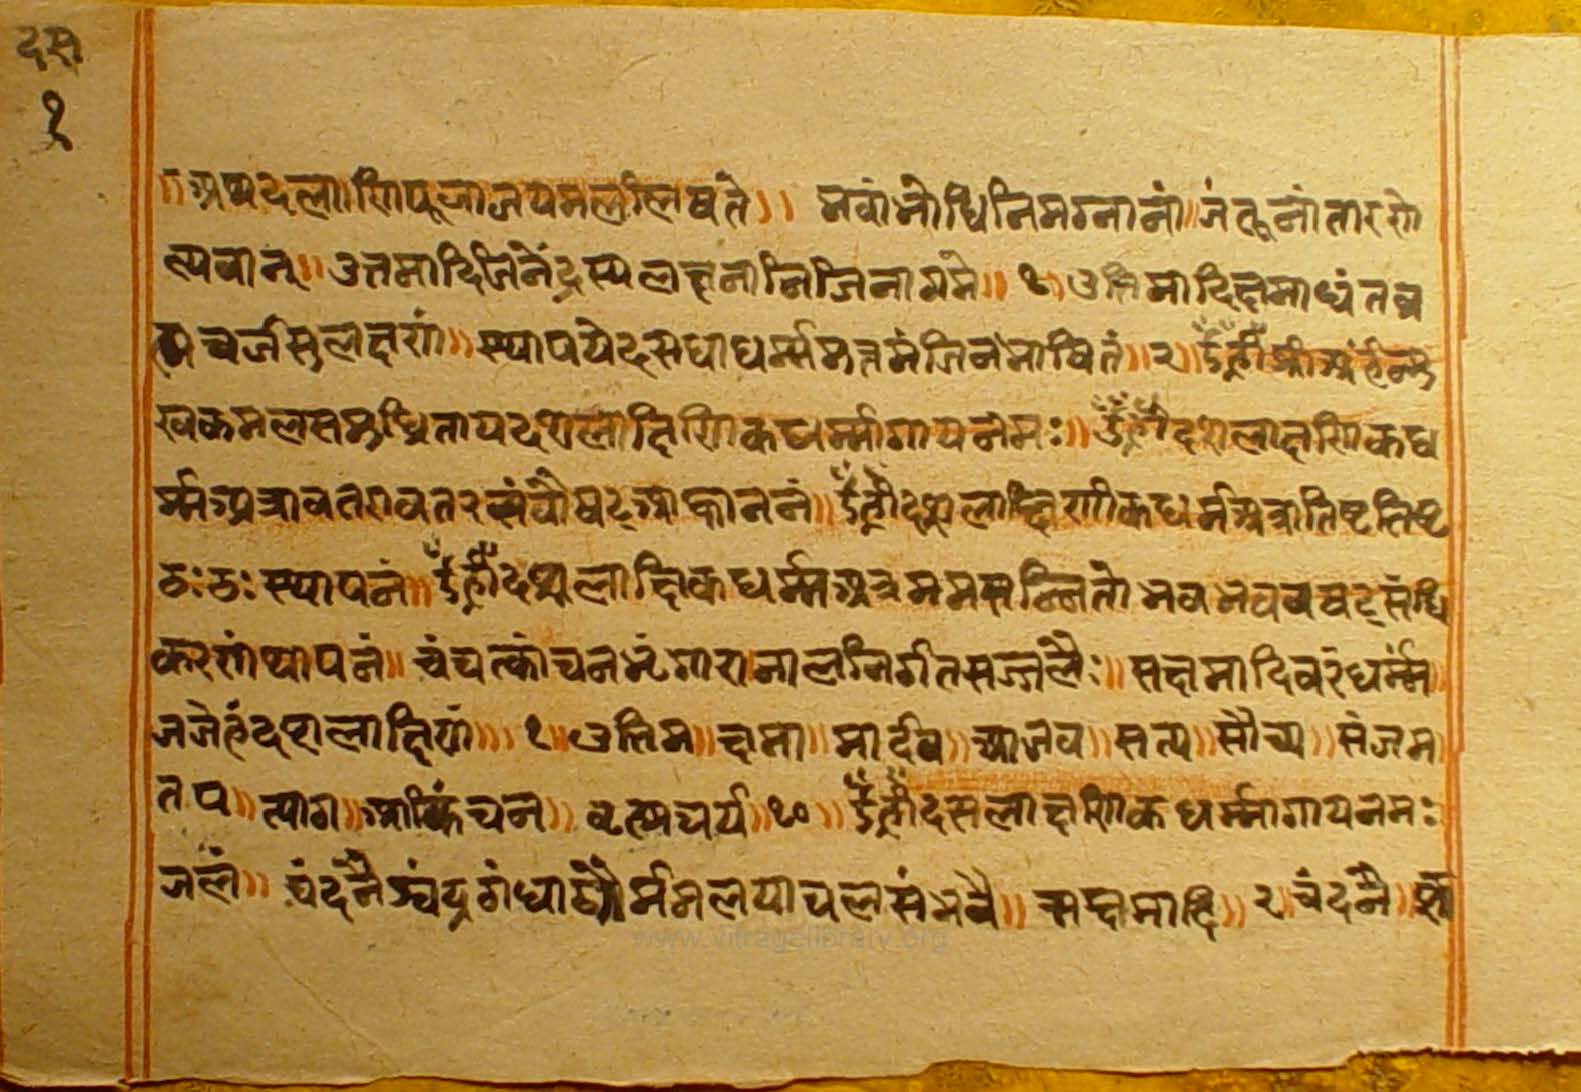 दस
१
॥अथदसलाषिणपूजाजयमललिष्यते॥ भवांभोधिनिमग्नानां॥जंतूनांतारणे
त्यवान्॥उतमादिजिनेंद्रस्यलक्षनानिजिनागमे॥१॥उत्तिमादिक्षमाद्यंतब्र
ह्मचर्जसुलक्षणं॥स्थापयेदसधाधर्म्ममुत्तमंजिनभाषितं॥२॥ॐह्रीं
खकमलसमुद्यितायदशलाक्षिणिकधर्म्मागायनमः॥ॐह्रींदशलाक्षणिकध
र्म्मअत्रावतरावतरसंवौषट्आह्वाननं॥ॐह्रींदशलाक्षिणीकधर्मअत्रातिष्टतिष्ट
ठःठःस्थापनं॥ॐह्रींदशलाक्षिकधर्म्मअत्रममसन्नितोभवभववषट्संधि
करणंथापनं॥चंचत्कांचनभृंगारानालनिर्गतसज्जलैः॥सक्षमादिवरंधर्म्मं
जजेहंदशलाक्षिणं॥१॥उत्तिम॥क्षमा॥मार्दव॥आजव॥सत्य॥सौच्य॥संजम
तप॥त्याग॥आकिंचन॥ब्रह्मचर्य॥१०॥ॐह्रींदसलाक्षणिकधर्म्मागायनमः
जलं॥चंदनैश्चंद्रगंधाढ्यैर्ममलयाचलसंभवै॥सक्षमादि॥२॥चंदनै॥
www.vitragelibrary.org